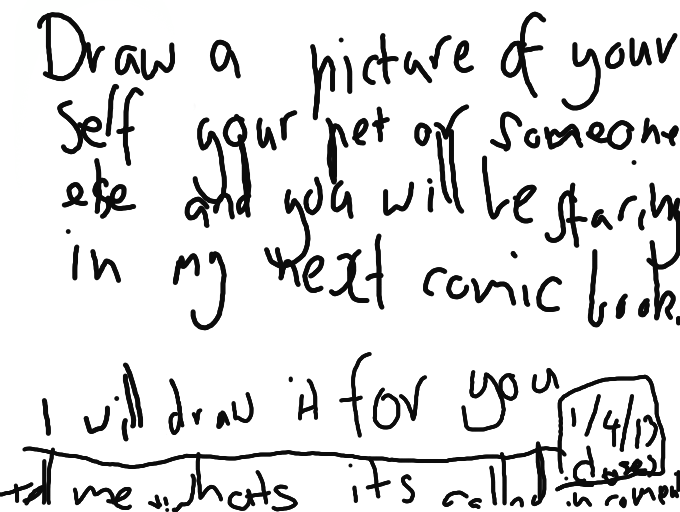 Draw a picture of your
self your pet or someone
else and you will be staring
in my next comic book.
I will draw it for you
1/4/13
closes
tell me whats its called in coment